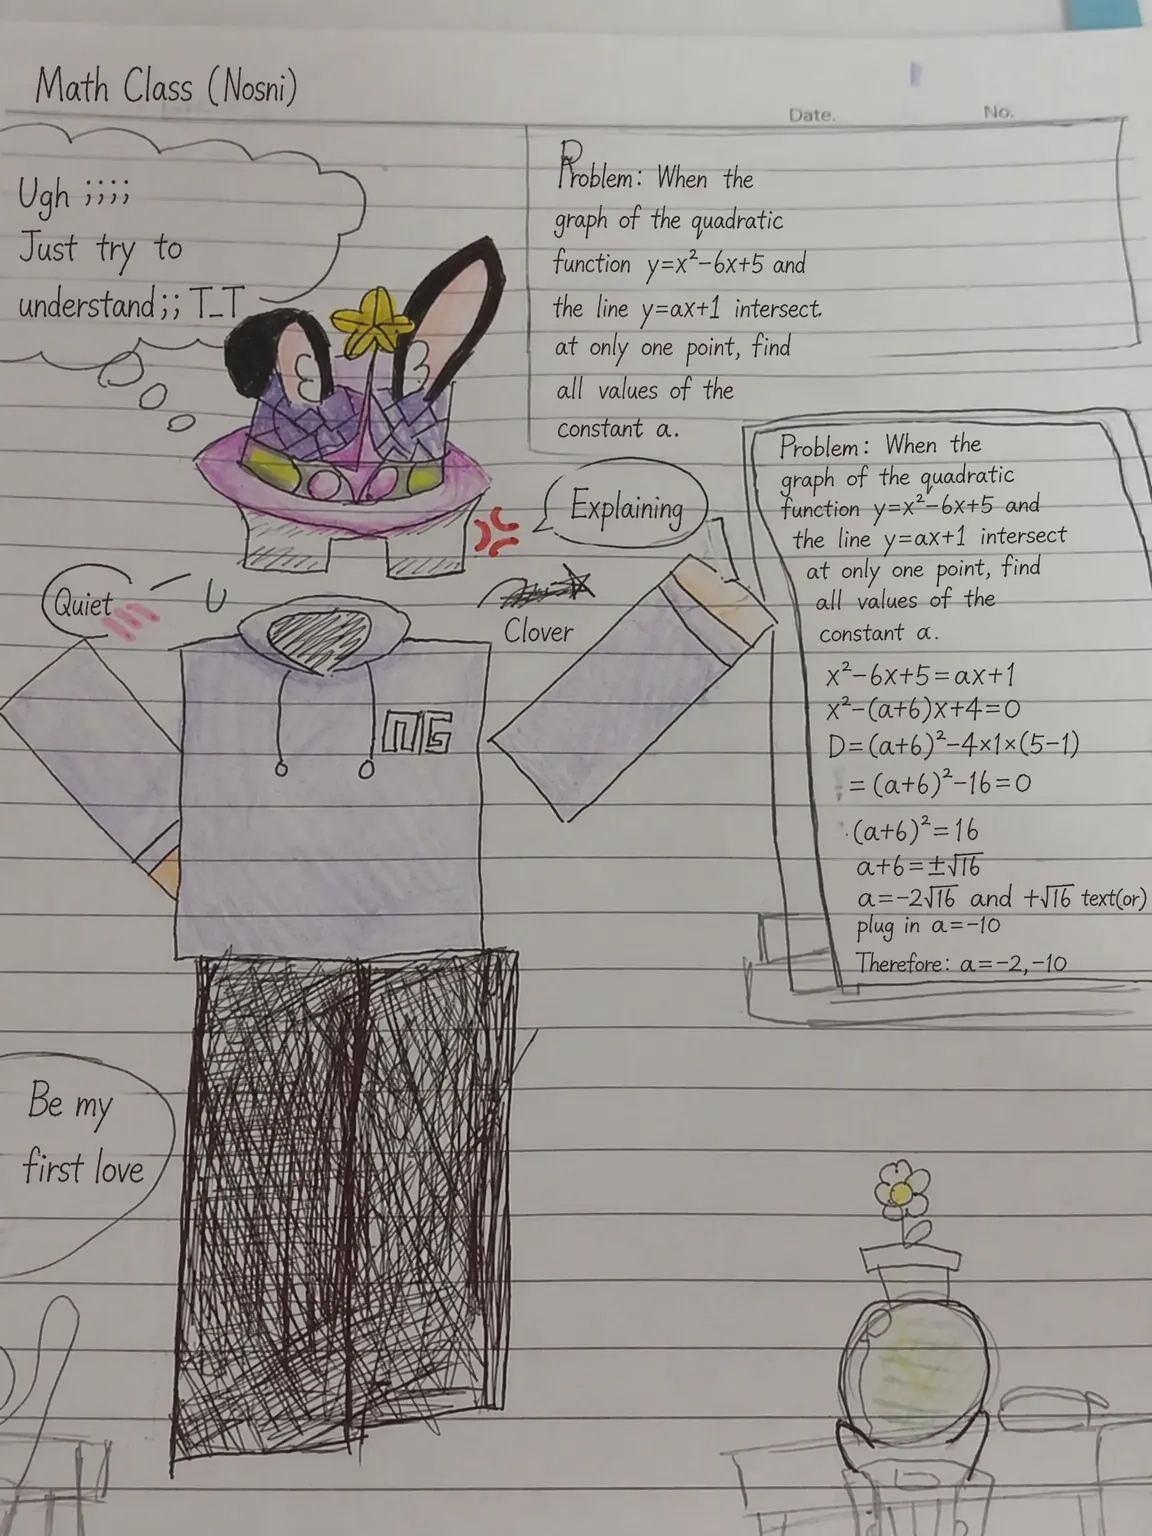 Math Class (Nosni)
Date.
No.
Ugh ;;;;
Just try to
understand;; T_T
Problem: When the
graph of the quadratic
function y=x²-6x+5 and
the line y=ax+1 intersect.
at only one point, find
all values of the
constant a.
Explaining
Quiet
Clover
NG
Problem: When the
graph of the quadratic
function y=x²-6x+5 and
the line y=ax+1 intersect
at only one point, find
all values of the
constant a.
x²-6x+5=ax+1
x²-(a+6)x+4=0
D=(a+6)²-4×1×(5-1)
=(a+6)²-16=0
(a+6)²=16
a+6=±√16
a=-2√16 and +√16 text(or)
plug in a=-10
Therefore: a=-2,-10
Be my
first love